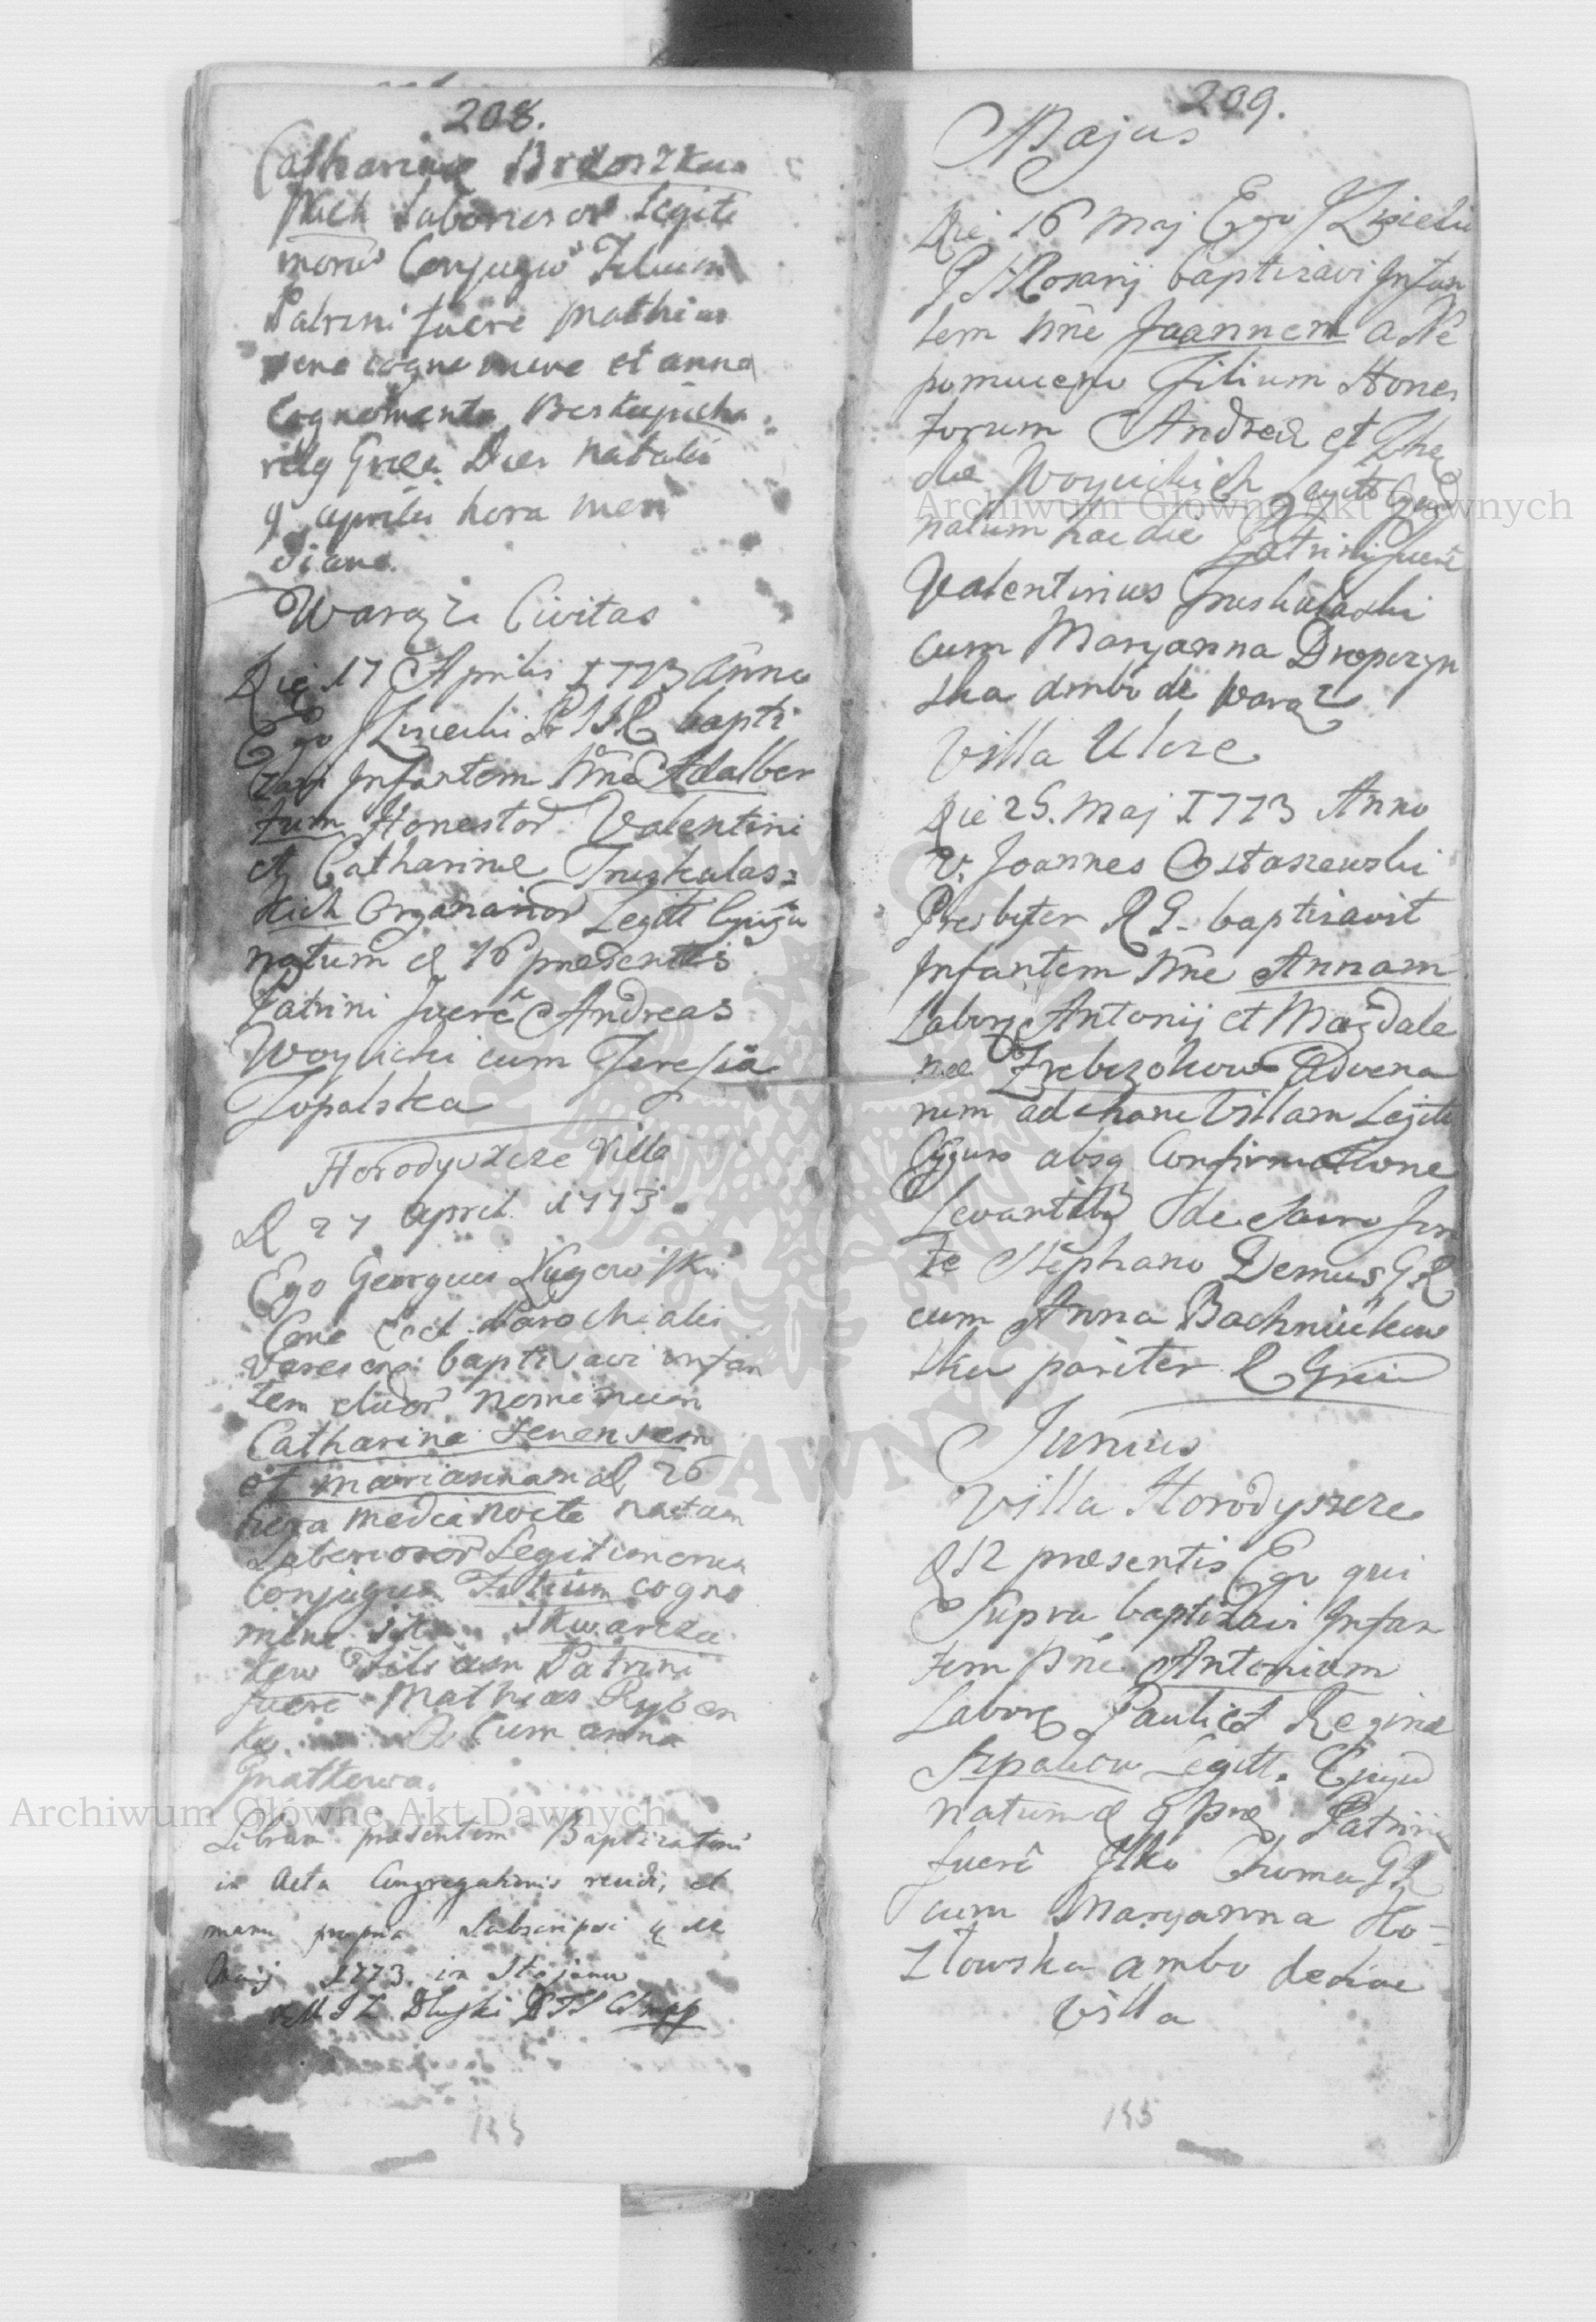 208.
Catharinae Brdoszkie
wich Laboriosor Legiti
moru Conjugu Filium
Patrini fuere Mathias
sene cognomine et anna
Cognomento Beskupicha
ritg Graeci Dies natalis
9 aprilis hora meri
diana.
Waręż Civitas
Die 17 Aprilis 1773 Anno
Ego J Lisiecki P S R bapti
zavi Infantem Nne Adalber
tum Honestor Valentini
et Catharinae Truskulas=
kich Organarior Legitt Cjugu
natum d 16 praesentis
Patrini fuere Andreas
Woyucki cum Teresia
Topalska
Horodyszcze Villa
D 27 april 1773
Ego Georgius
Eccl. Parochialis
Varesen: baptisavi infan
tem duor nominum
Catharina Senensem
et mariannam d 26
hora media nocte natam
Laboriosor Legitimorum
Conjugum cogno
mine Skwarcza
kow Filiam Patrini
fuere Mathias Ryban
ka cum anna
Gnatkowa.
Librum praesentem Baptizatorum
in Acta Congregationis revidi, et
manu propria subscripsi d 11
Maij 1773 in Stojanow
Dluski
209.
Majus
Die 16 Maj Ego J Lisiecki
P S Rosarij baptizavi Infan
tem Nne Joannem a Ne
pomuceno Filium Hones
torum Andreae et The
clae Woyuckich Legitt Cjug
natum hac die Patrini fuere
Valentinus Truskulaski
cum Maryanna Dropczyn
ska ambo de Waręż
Villa Ulwze
Die 25. Maj 1773 Anno
V. Joannes Ostaszewski
Presbyter R G. baptizavit
Infantem Nne Annam
Labor Antonij et Magdale
nae Trebczokow Advena
rum ad hanc Villam Legitt
Cjguu absq Confirmatione
Levantibq de Sacro Fon
te Stephano Demus G R
cum Anna Bachniukow
ska pariter R Graeci
Junius
Villa Horodyszcze
d 12 praesentis Ego qui
Supra baptizavi Infan
tem Nne Antonium
Labor Pauli et Reginae
Szpakow Legitt. Cjugu
natum d 9 prae Patrini
fuere Ilko Choma G R
cum Maryanna Ko-
złowska ambo de hac
Villa
135
135
Archiwum Główne Akt Dawnych
Archiwum Główne Akt Dawnych